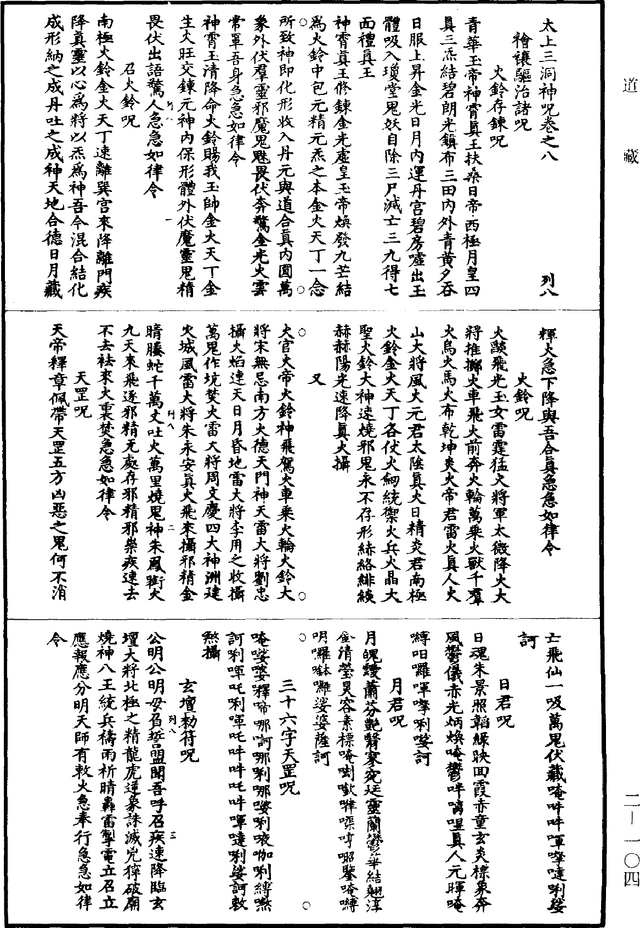 道藏
太上三洞神呪卷之八 列八
檜禳驅治諸呪
火鈴存鍊呪
青華玉帝神霄真王扶桑日帝西極月皇四
真三炁結碧朗光鎮布三田內外青黃夕吞
日服上昇金光日月內運丹宮碧房噓出玉
體吸入瓊堂鬼妖自除三尸滅亡三九得七
面禮真王
神霄真王修鍊金光虛皇玉帝煥發九芒結
為火鈴中包元精元炁之本金火天丁一念
所致神即化形收入丹元與道合真內圓萬
象外伏羣靈邪魔鬼魅畏伏奔驚金光火雲
常罩吾身急急如律令
神霄玉清降命火鈴賜我玉帥金火天丁金
生火旺交鍊元神內保形體外伏魔靈鬼精
畏伏出語驚人急急如律令
召火鈴呪
南極火鈴金火天丁速離巽宮來降離門疾
降真靈以心為將以炁為神吾今混合結化
成形納之成丹吐之成神天地合德日月藏
輝火急下降與吾合真急急如律令
火鈴呪
火談飛光玉女雷霆猛火將軍太微降火大
將推擲火車飛火前奔火輪萬乘火獸千羣
火鳥火馬火布乾坤炎火帝君雷火真人火
山大將風火元君太陰真火日精炎君南極
火鈴金火天丁各伏火劒統禦火兵火晶大
聖火鈴大神速燒邪鬼永不存形絲絡緋
赫赫陽光速降真火攝
又
火官大帝火鈴神飛駕火車乘火輪火鈴大
將宋無忌南方火德天門神天雷大將劉忠
攝火焰連天日月昏地雷大將李用之收攝
萬鬼作坑焚火雷大將周文慶四大神洲建
火城風雷大將朱永安真火飛來攝邪精金
睛螣蛇千萬丈吐火萬里燒鬼神朱鳳銜火
九天來飛逐邪精無處存邪精邪祟疾速去
不去祛來火棗焚急急如律令
天罡呪
天帝釋章佩帶天罡五方凶惡之鬼何不消
亡飛仙一吸萬鬼伏藏唵吽吽㗲哩唎娑
訶
日君呪
日魂朱景照韜綠映回霞赤童玄炎標象奔
風鬱儀赤光炳煥唵鬱吽唎真人元暉唵
縛囉㗲唎娑訶
月君呪
月魄曖蕭芬艷翳寥宛延靈蘭鬱華結翹淳
金清瑩炅容素標唵
明囉娑婆薩訶
三十六字天罡呪
唵娑婆釋帝那訶那唎那婆唎唎縛
訶唎㗲吒唎㗲吒吽吽吒吽吽㗲噠唎娑訶敕
煞攝
玄壇勅符呪
公明公明毋負誓盟聞吾呼召疾速降臨玄
壇大將北極之精龍虎逆象誅滅兇獰破廟
燒神八王統兵禱雨祈晴轟雷掣電立召立
應報應分明天師有敕火急奉行急急如律
令
二—一〇四